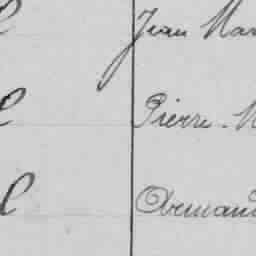 Jean Mar
Pierre-M
Armand